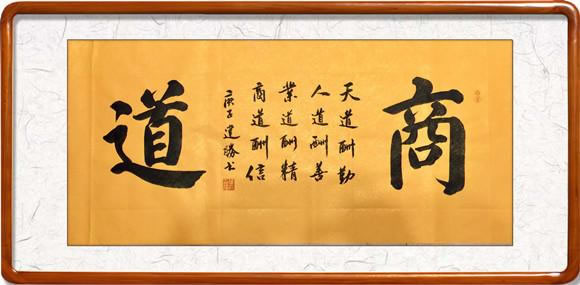 商道
天道酬勤
人道酬善
業道酬精
商道酬信
庚子 书